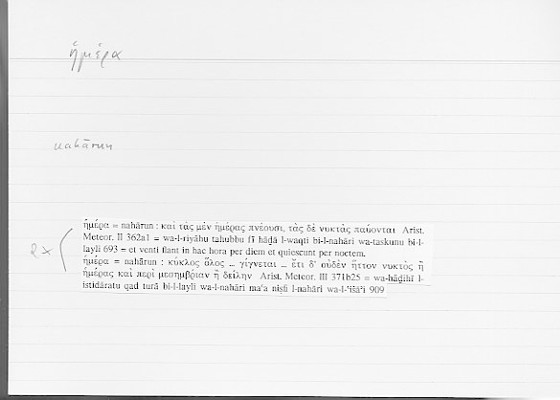 ἡμέρα
nahārun
2×
ἡμέρα = nahārun : καὶ τὰς μὲν ἡμέρας πνέουσι, τὰς δὲ νυκτὸς παύονται Arist.
Meteor. II 362a1 = wa-l-riyāḥu tahubbu fī hāḏā l-waqti bi-l-nahāri wa-taskunu bi-l-
layli 693 = et venti flant in hac hora per diem et quiescunt per noctem.
ἡμέρα = nahārun : κύκλος ὅλος ... γίγνεται ... ἔτι δ' οὐδὲν ἧττον νυκτὸς ἢ
ἡμέρας καὶ περὶ μεσημβρίαν ἢ δείλην Arist. Meteor. III 371b25 = wa-hāḏihī l-
istidāratu qad turā bi-l-layli wa-l-nahāri maʿa niṣfi l-nahāri wa-l-ʿišāʾi 909